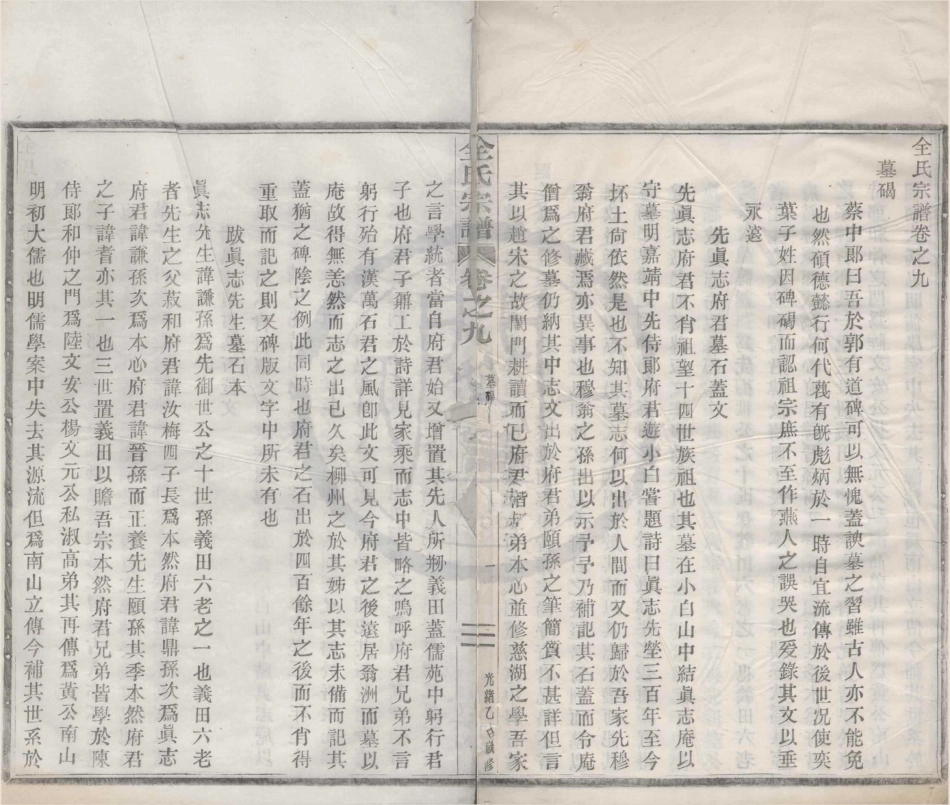 全氏宗譜卷之九
墓碣
蔡中郎曰吾於郭有道碑可以無愧蓋諛墓之習雖古人亦不能免
也然碩德懿行何代蔑有旣彪炳於一時自宜流傳於後世况使奕
葉子姓因碑碣而認祖宗庶不至作燕人之誤哭也爰錄其文以垂
永遠
先眞志府君墓石蓋文
先眞志府君不肖祖望十四世族祖也其墓在小白山中結眞志庵以
守墓明嘉靖中先侍郎府君遊小白嘗題詩曰眞志先塋三百年至今
抔土尙依然是也不知其墓志何以出於人間而又仍歸於吾家先穆
翁府君藏焉亦異事也穆翁之孫出以示予予乃補記其石蓋而令庵
僧爲之修墓仍納其中志文出於府君弟頤孫之筆簡質不甚詳但言
其以趙宋之故閉門耕讀而已府君偕其弟本心並修慈湖之學吾家
全氏宗譜
卷之九
墓碣
一
光緒乙 修
之言學統者當自府君始又增置其先人所剏義田蓋儒苑中躬行君
子也府君子鼒工於詩詳見家乘而志中皆略之嗚呼府君兄弟不言
躬行殆有漢萬石君之風卽此文可見今府君之後遠居翁洲而墓以
庵故得無恙然而志之出已久矣柳州之於其姊以其志未備而記其
蓋猶之碑陰之例此同時也府君之石出於四百餘年之後而不肖得
重取而記之則又碑版文字中所未有也
跋眞志先生墓石本
眞志先生諱謙孫爲先御世公之十世孫義田六老之一也義田六老
者先生之父菽和府君諱汝梅四子長爲本然府君諱鼎孫次爲眞志
府君諱謙孫次爲本心府君諱晉孫而正養先生頤孫其季本然府君
之子諱耆亦其一也三世置義田以贍吾宗本然府君兄弟皆學於陳
侍郎和仲之門爲陸文安公楊文元公私淑高弟其再傳爲黃公南山
明初大儒也明儒學案中失去其源流但爲南山立傳今補其世系於